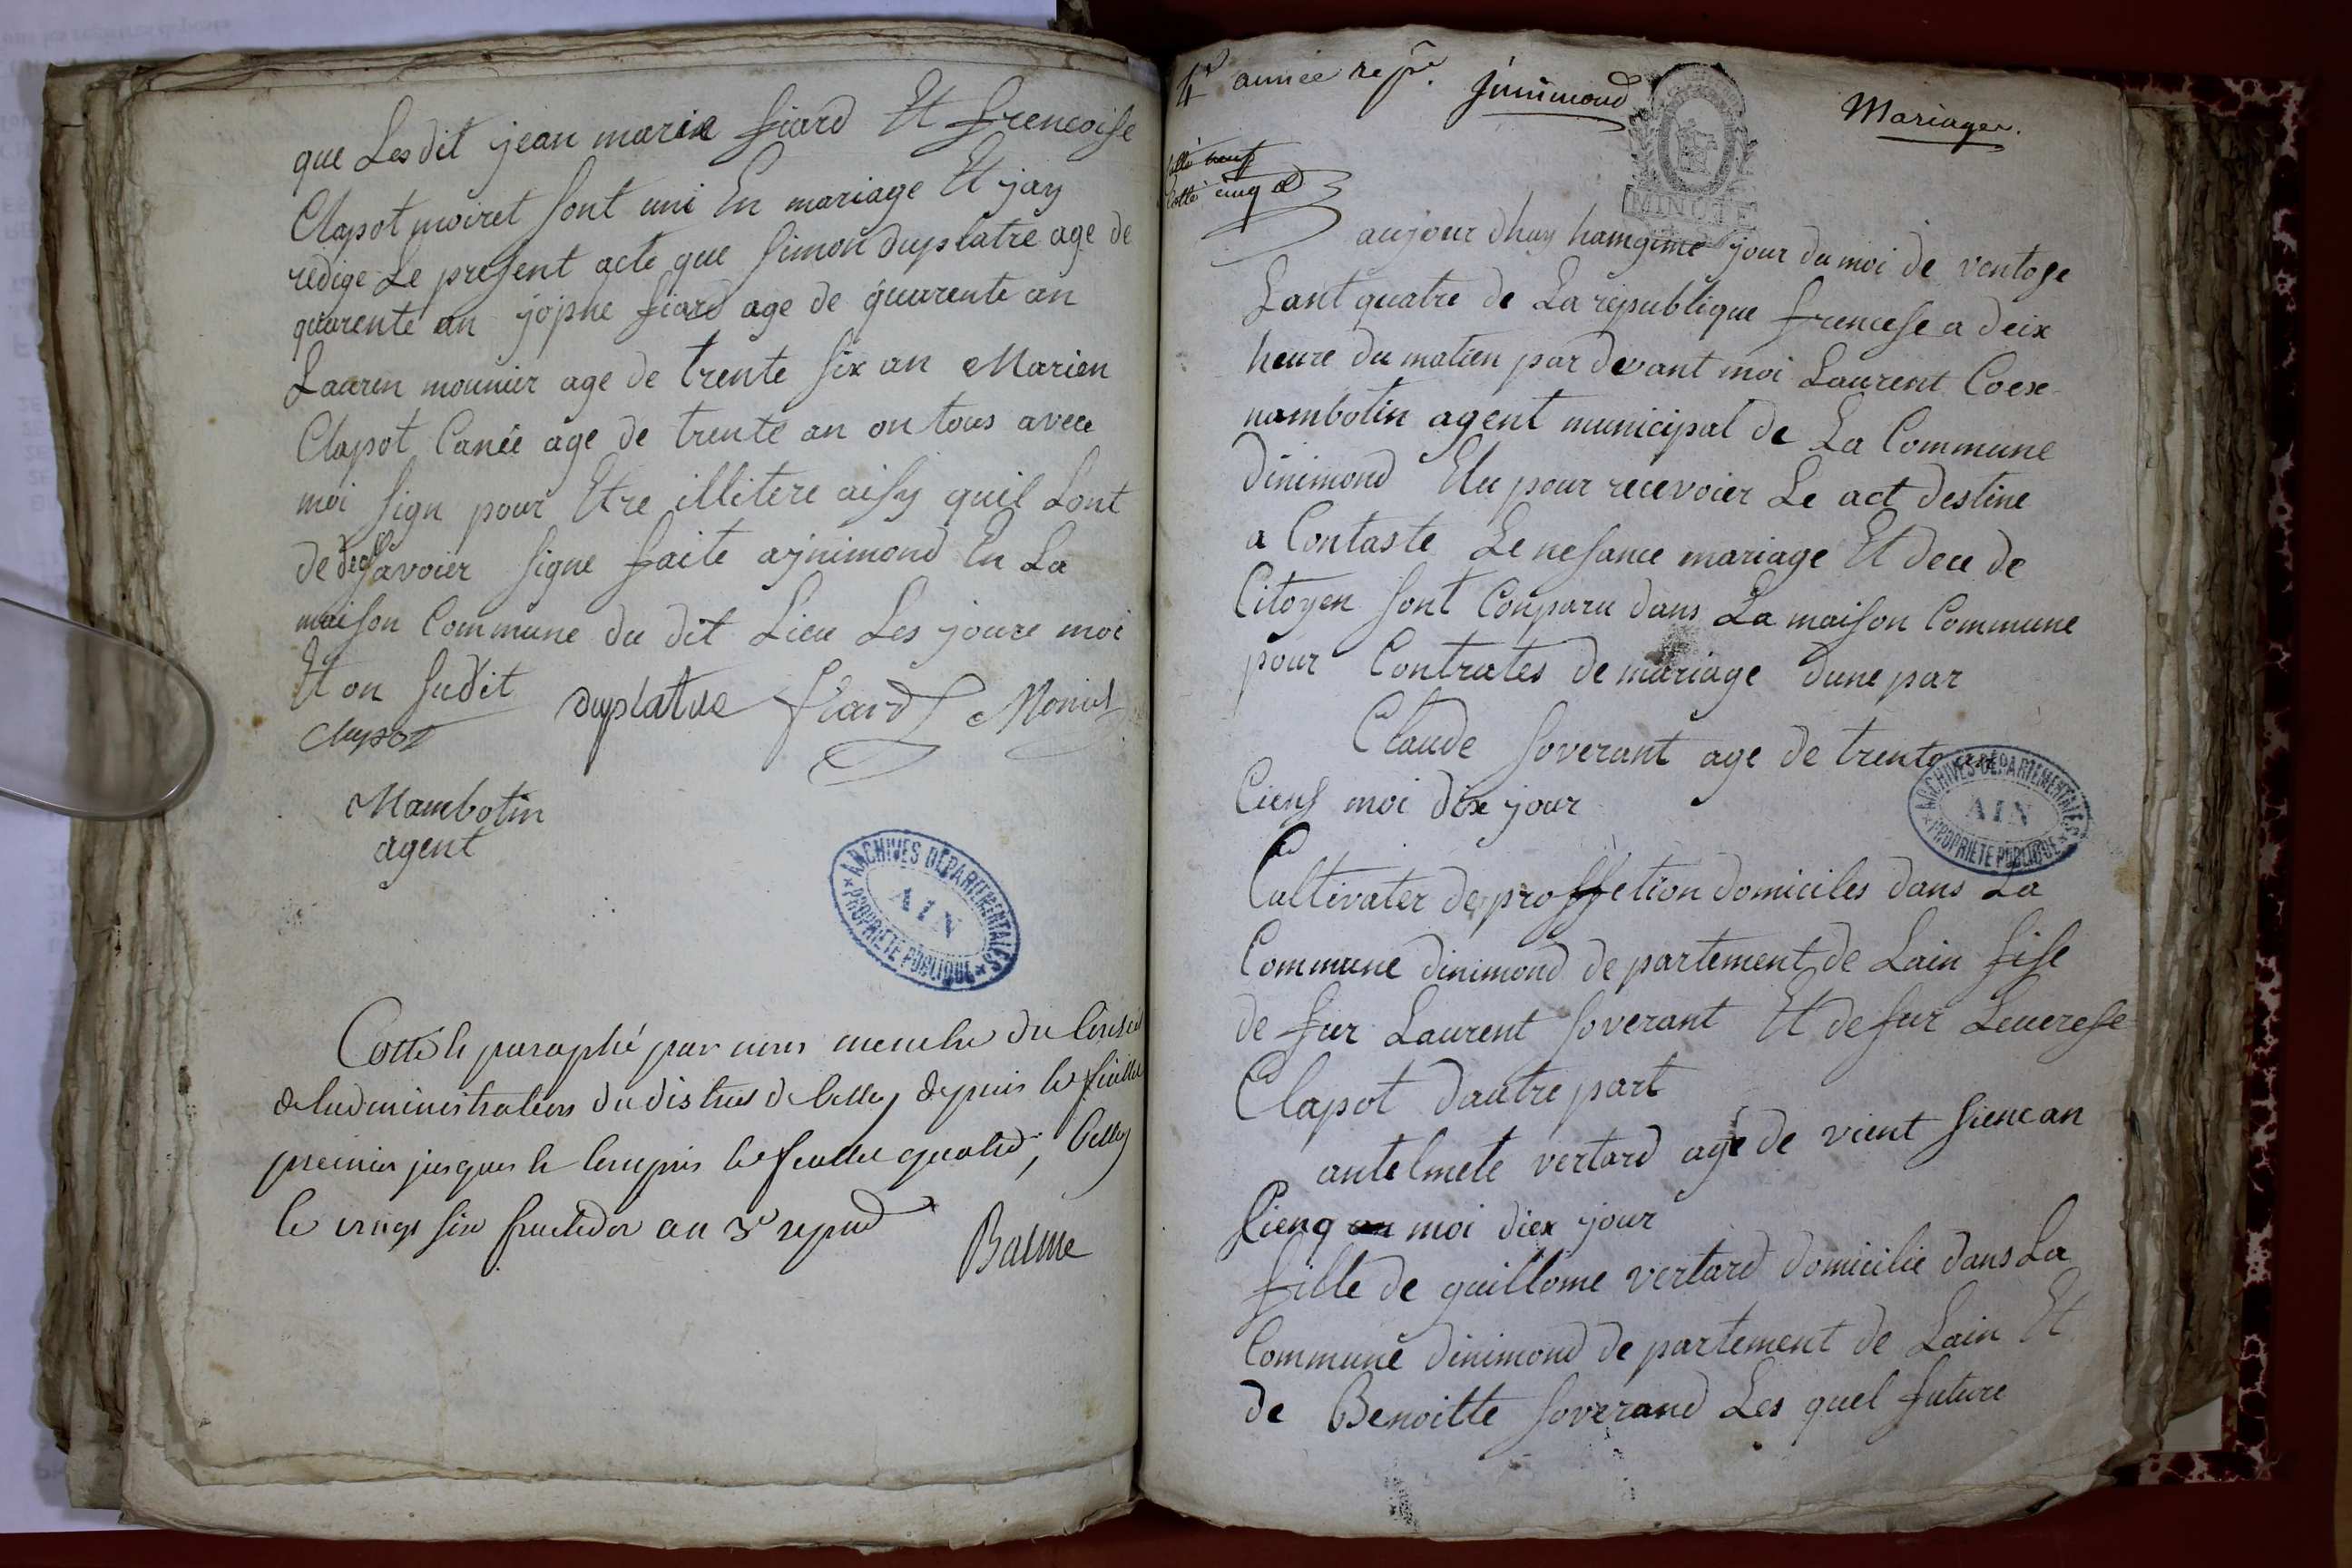 que Les dit jean marie fiard Et frencoise
Clapot moiret sont uni En mariage Et jay
redige Le present acte que Simon duplatre age de
quarente an jophe fiard age de quarente an
Lauren mounier age de trente six an Marien
Clapot Canée age de trente an on tous avece
moi sign pour Etre illitere aisy quil Lont
de decl savoier signe faite ajnimond En La
maison Commune du dit Lieu Les joure moi
Et on sudit duplatre fiard Moniet
Clapot
Mambotin
agent
ARCHIVES DÉPARTEMENTALES
AIN
PROPRIÉTÉ PUBLIQUE
Cotté & paraphé par nous membre du Conseil
de ladministration du district de belley depuis le feuillet
premier jusques & compris le feuillet quatre, belley
le vingt six fructidor an 3e repud
Balme
4e année repne. jnnimond Mariages.
neuf
Cotté cinq
MINUTE
aujour dhuy jour du moi de ventose
Lant quatre de La republique francese a deix
heure du matien par devant moi Laurent Coex
nambotin agent municipal de La Commune
dinimond Elu pour recevoier Le act destine
a Contaste Le nesance mariage Et dece de
Citoyen sont Conparu dans La maison Commune
pour Contrates de mariage dune par
Claude soverant age de trente an
Cienq moi dix jour
ARCHIVES DÉPARTEMENTALES
AIN
PROPRIÉTÉ PUBLIQUE
Cultivater de proffetion domiciles dans La
Commune dinimond de partement de Lain fise
de fur Laurent soverant Et de fur Leucresse
Clapot dautre part
antelmete vertard age de vient sienc an
sienq moi diex jour
fille de guillome vertard domicilie dans La
Commune dinimond de partement de Lain Et
de Benoitte soverand Les quel future